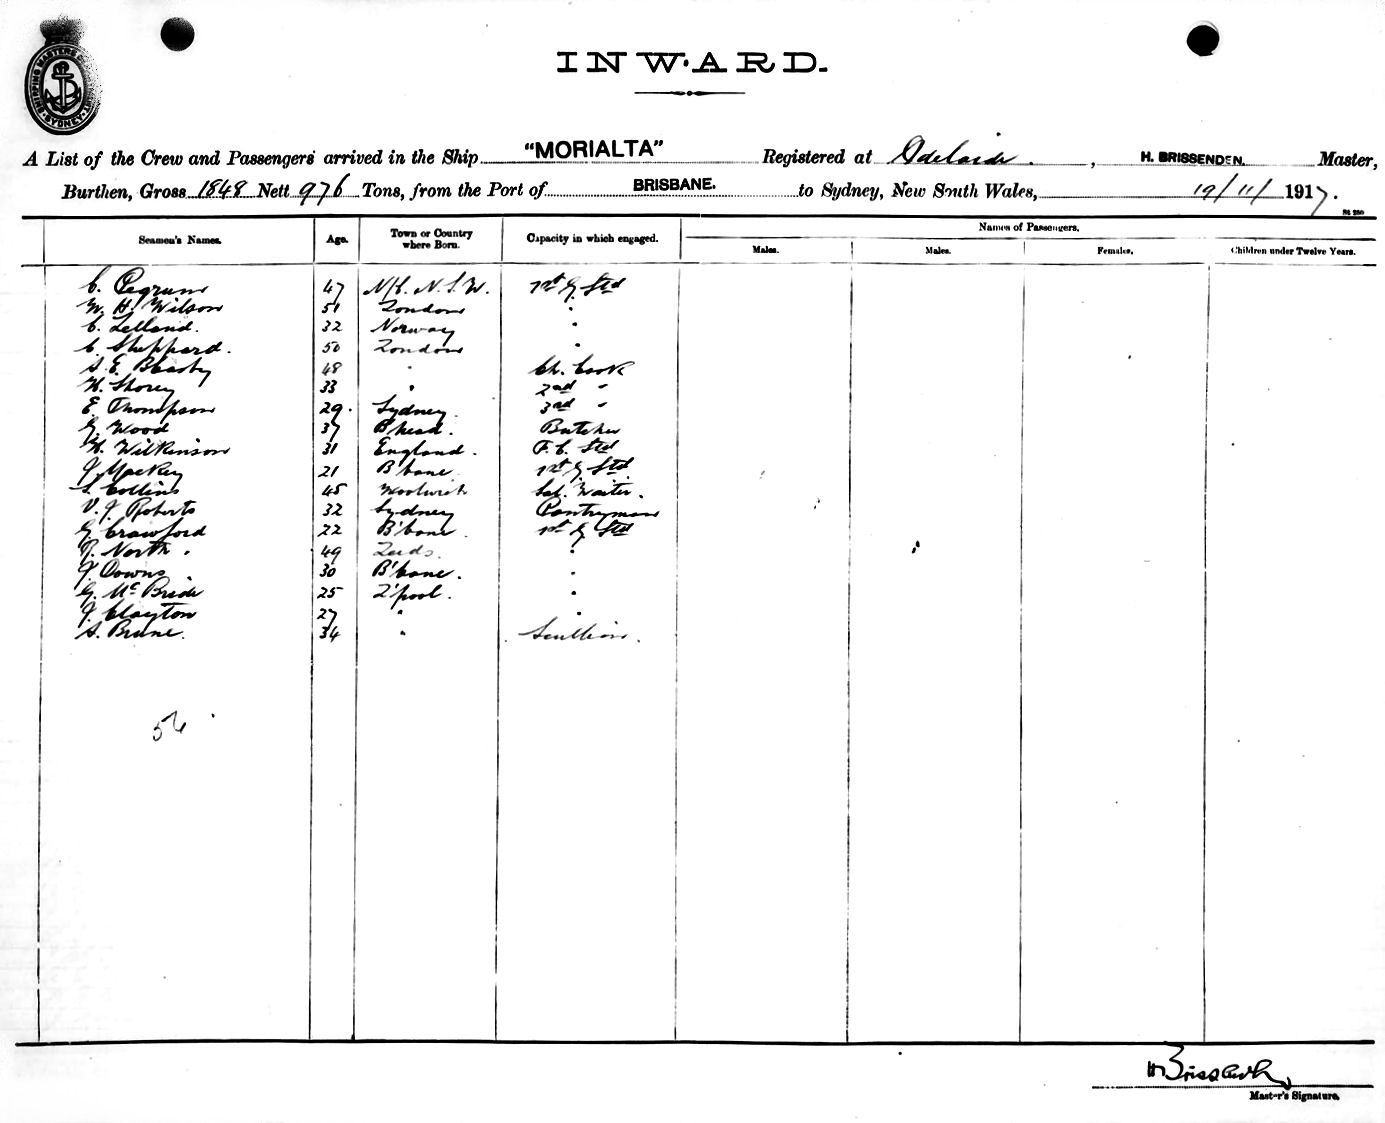 SHIPPING MASTERS SYDNEY
INWARD.
A List of the Crew and Passengers arrived in the Ship "MORIALTA" Registered at Adelaide, H. BRISSENDEN. Master,
Burthen, Gross 1848 Nett 976 Tons, from the Port of BRISBANE. to Sydney, New South Wales, 19/11/1917.
Seamen's Names. Age. Town or Country where Born. Capacity in which engaged. Names of Passengers.
Males. Males. Females. Children under Twelve Years.
C. Pegrum 47 N/C. N.S.W. 1st G. Std
W. H. Wilson 51 London "
C. Lelland. 32 Norway "
C. Sheppard. 50 London "
S. E. 48 " Ch. Cook
H. Storey 33 " 2nd "
E. Thompson 29. Sydney. 3rd "
G. Wood 37 B'head. Butcher
H. Wilkinson 31 England. F. C. Std
J. Mackey 21 B'bane. 1st G. Std
S. Collins 45 Woolwich Sal. Waiter.
V. J. Roberts 32 Sydney Pantryman
G. Crawford 22 B'bane. 1st G Std
North. 49 Leeds. "
J. Downs 30 B'bane. "
G. McBride 25 L'pool. "
J. Clayton 27 " "
S. Brune. 34 " Scullion.
56
Master's Signature.